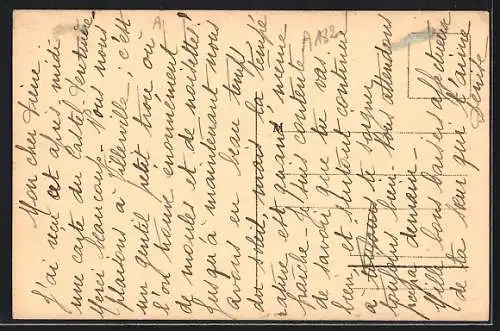 Mon cher Jaime
J'ai reçu cet après midi
une carte du Castel Venturine
Merci beaucoup - Nous nous
plaisons à Villerville, c'est
un gentil petit trou où
l'on trouve énormément
de moules et de maillettes!
Jusqu'à maintenant nous
avons eu beau temps
du soleil, mais la tempé
rature est quand même
fraîche - Je suis contente
de savoir que tu vas
bien et surtout continue
à te soigner
toujours bien. Nous attendons
papa demain -
Mille bons baisers affectueux
de ta sœur qui t'aime
Denise
A132